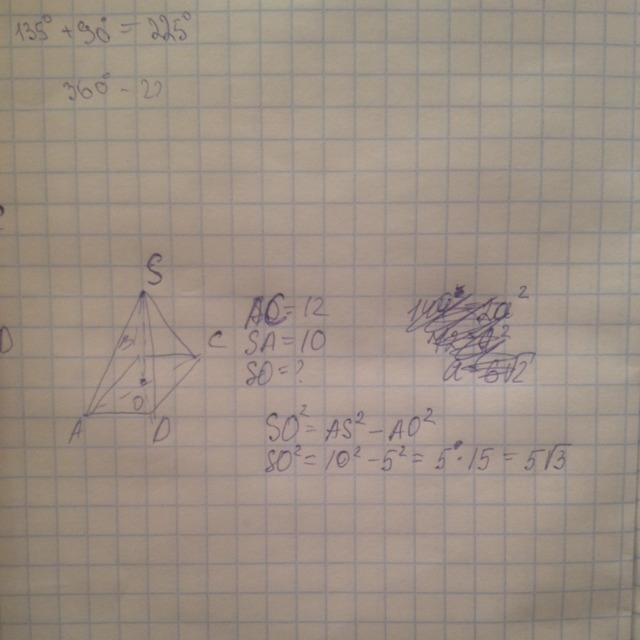 135° + 90° = 225°
360° - 22
S
C
A
D
O
AC = 12
SA = 10
SO = ?
SO² = AS² - AO²
SO² = 10² - 5² = 5 · 15 = 5√3